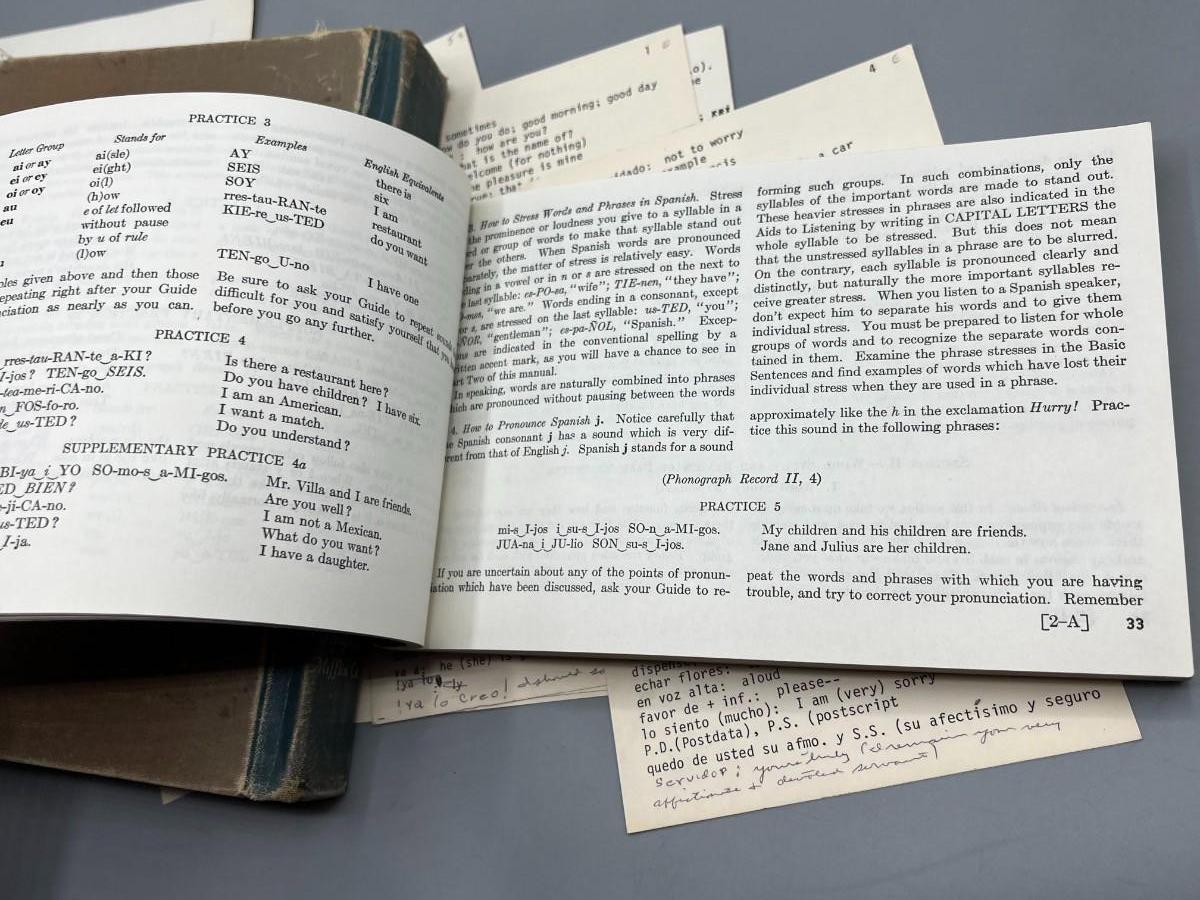 PRACTICE 3
Letter Group Stands for Examples English Equivalents
ai or ay ai(sle) AY there is
ei or ey ei(ght) SEIS six
oi or oy oi(l) SOY I am
au (h)ow rres-tau-RAN-te restaurant
eu e of let followed KIE-re‿us-TED do you want
without pause
by u of rule
(l)ow TEN-go‿U-no I have one
ples given above and then those
epeating right after your Guide
ciation as nearly as you can.
Be sure to ask your Guide to repeat sounds
difficult for you and satisfy yourself that you
before you go any further.
PRACTICE 4
rres-tau-RAN-te‿a-KI? Is there a restaurant here?
I-jos? TEN-go‿SEIS. Do you have children? I have six.
-tea-me-ri-CA-no. I am an American.
n‿FOS-fo-ro. I want a match.
de‿us-TED? Do you understand?
SUPPLEMENTARY PRACTICE 4a
BI-ya‿i‿YO SO-mo-s‿a-MI-gos. Mr. Villa and I are friends.
ED‿BIEN? Are you well?
-ji-CA-no. I am not a Mexican.
us-TED? What do you want?
I-ja. I have a daughter.
1
4
sometimes
do you do; good morning; good day
how are you?
hat is the name of?
lcome (for nothing)
e pleasure is mine
not to worry
a car
3. How to Stress Words and Phrases in Spanish. Stress
the prominence or loudness you give to a syllable in a
rd or group of words to make that syllable stand out
er the others. When Spanish words are pronounced
parately, the matter of stress is relatively easy. Words
ding in a vowel or in n or s are stressed on the next to
last syllable: es-PO-sa, "wife"; TIE-nen, "they have";
-mos, "we are." Words ending in a consonant, except
or s, are stressed on the last syllable: us-TED, "you";
ÑOR, "gentleman"; es-pa-ÑOL, "Spanish." Excep-
ns are indicated in the conventional spelling by a
itten accent mark, as you will have a chance to see in
rt Two of this manual.
In speaking, words are naturally combined into phrases
hich are pronounced without pausing between the words
forming such groups. In such combinations, only the
syllables of the important words are made to stand out.
These heavier stresses in phrases are also indicated in the
Aids to Listening by writing in CAPITAL LETTERS the
whole syllable to be stressed. But this does not mean
that the unstressed syllables in a phrase are to be slurred.
On the contrary, each syllable is pronounced clearly and
distinctly, but naturally the more important syllables re-
ceive greater stress. When you listen to a Spanish speaker,
don't expect him to separate his words and to give them
individual stress. You must be prepared to listen for whole
groups of words and to recognize the separate words con-
tained in them. Examine the phrase stresses in the Basic
Sentences and find examples of words which have lost their
individual stress when they are used in a phrase.
4. How to Pronounce Spanish j. Notice carefully that
e Spanish consonant j has a sound which is very dif-
rent from that of English j. Spanish j stands for a sound
approximately like the h in the exclamation Hurry! Prac-
tice this sound in the following phrases:
(Phonograph Record II, 4)
PRACTICE 5
mi-s‿I-jos i‿su-s‿I-jos SO-n‿a-MI-gos. My children and his children are friends.
JUA-na‿i‿JU-lio SON‿su-s‿I-jos. Jane and Julius are her children.
If you are uncertain about any of the points of pronun-
iation which have been discussed, ask your Guide to re-
peat the words and phrases with which you are having
trouble, and try to correct your pronunciation. Remember
[2-A] 33
he (she)
¡ya lo creo!
echar flores:
en voz alta: aloud
favor de + inf.: please--
lo siento (mucho): I am (very) sorry
P.D.(Postdata), P.S. (postscript
quedo de usted su afmo. y S.S. (su afectísimo y seguro
servidor; yours truly (I remain your very
affectionate & devoted servant)